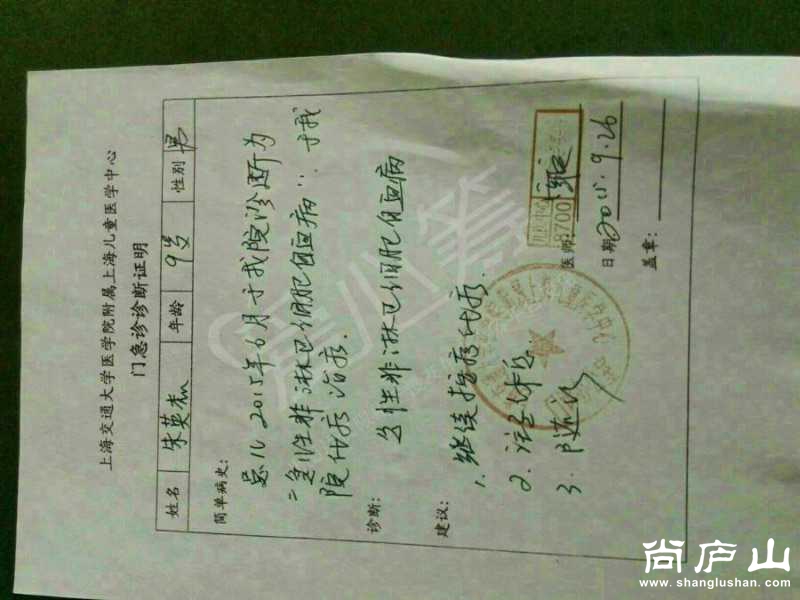 上海交通大学医学院附属上海儿童医学中心
门急诊诊断证明
姓名 朱英杰 年龄 9岁 性别 男
简单病史:
患儿2015年6月于我院诊断为
"急性非淋巴细胞白血病". 于我
院化疗治疗.
诊断:
急性非淋巴细胞白血病
建议:
1. 继续按疗化疗.
2. 注意休息
3. 随访
医师:
8700
日期: 2015.9.26
盖章:
尚庐山
www.shanglushan.com